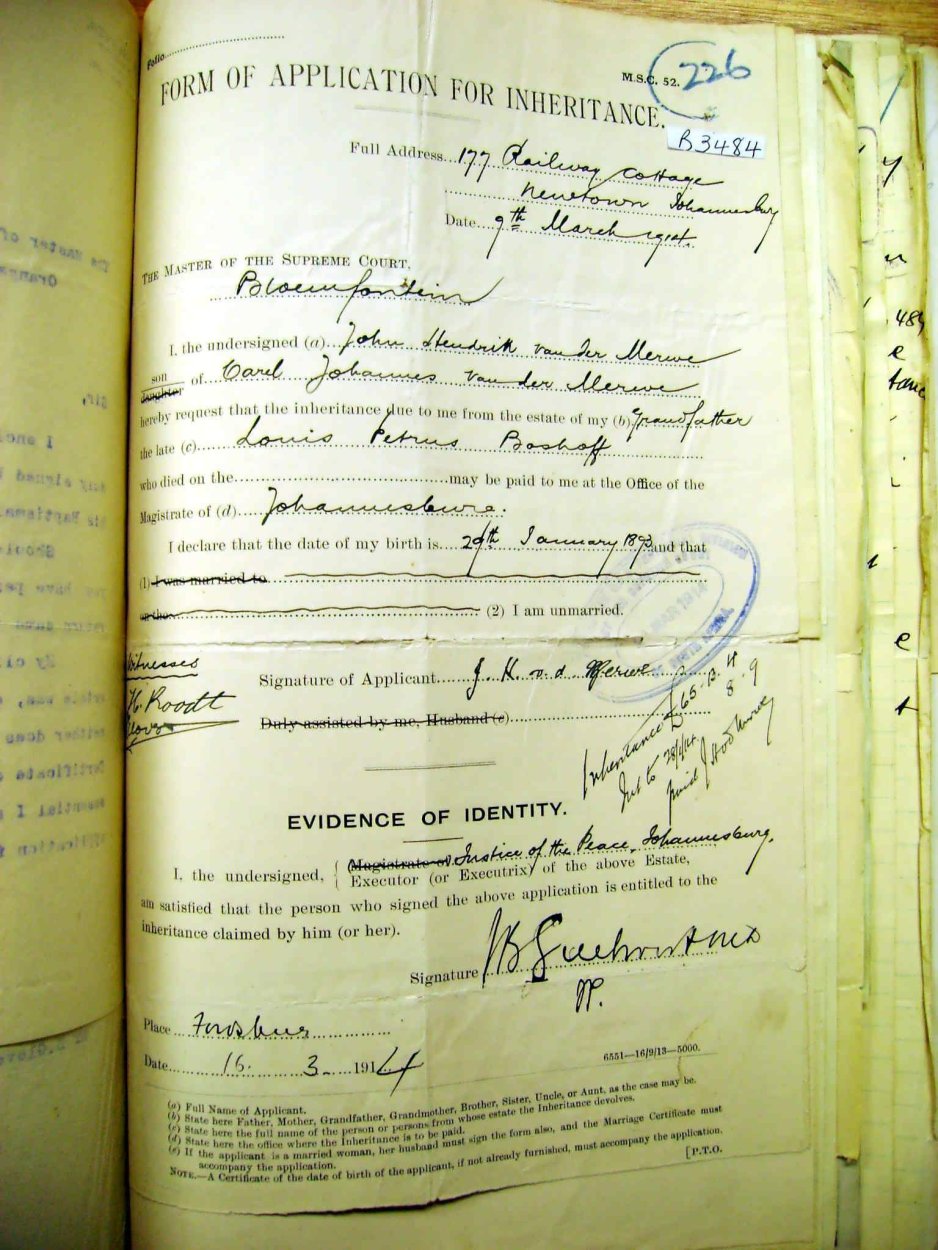 Folio
M.S.C. 52.
226
FORM OF APPLICATION FOR INHERITANCE.
B3484
Full Address...177 Railway Cottage
Newtown Johannesburg
Date...9th March 1914.
THE MASTER OF THE SUPREME COURT,
Bloemfontein
I, the undersigned (a) John Hendrik van der Merwe
son
daughter of Carel Johannes van der Merwe
hereby request that the inheritance due to me from the estate of my (b) Grandfather
the late (c) Louis Petrus Boshoff
who died on the may be paid to me at the Office of the
Magistrate of (d) Johannesburg.
I declare that the date of my birth is January 1893 and that
(1) I was married to
on the (2) I am unmarried.
Witnesses
H. Roodt
Signature of Applicant J. H. v. d Merwe
Duly assisted by me, Husband (e)
Inheritance £65. 13. 4
Int to 28/4/14. 8. 9
paid
EVIDENCE OF IDENTITY.
I, the undersigned, { Magistrate of Justice of the Peace, Johannesburg.
Executor (or Executrix) of the above Estate,
am satisfied that the person who signed the above application is entitled to the
inheritance claimed by him (or her).
Signature
JP.
Place Fordsburg
Date 16. 3. 1914
6551—16/9/13—5000.
(a) Full Name of Applicant.
(b) State here Father, Mother, Grandfather, Grandmother, Brother, Sister, Uncle, or Aunt, as the case may be.
(c) State here the full name of the person or persons from whose estate the Inheritance devolves.
(d) State here the office where the Inheritance is to be paid.
(e) If the applicant is a married woman, her husband must sign the form also, and the Marriage Certificate must
accompany the application.
NOTE.—A Certificate of the date of birth of the applicant, if not already furnished, must accompany the application.
[P.T.O.